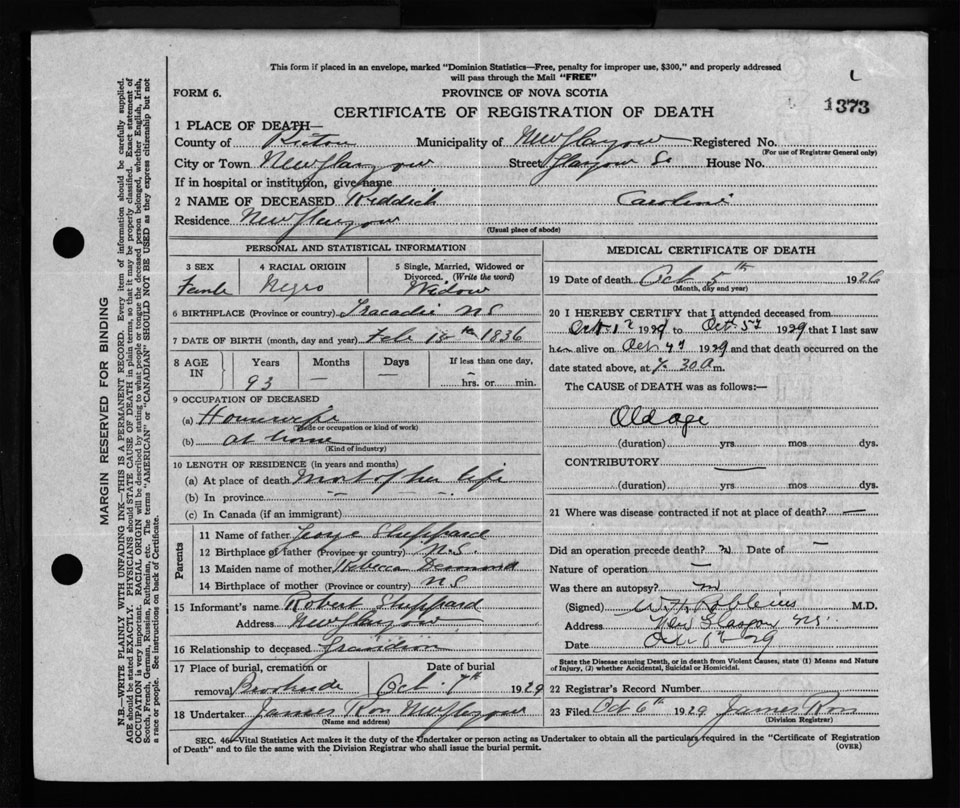 This form if placed in an envelope, marked "Dominion Statistics—Free, penalty for improper use, $300," and properly addressed
will pass through the Mail "FREE"
FORM 6.
PROVINCE OF NOVA SCOTIA
CERTIFICATE OF REGISTRATION OF DEATH
1373
1 PLACE OF DEATH—
County of Pictou Municipality of New Glasgow Registered No.
(For use of Registrar General only)
City or Town New Glasgow Street Glasgow St House No.
If in hospital or institution, give name
2 NAME OF DECEASED Reddick Caroline
Residence New Glasgow
(Usual place of abode)
PERSONAL AND STATISTICAL INFORMATION
3 SEX 4 RACIAL ORIGIN 5 Single, Married, Widowed or
Divorced. (Write the word)
Female Negro Widow
6 BIRTHPLACE (Province or country) Tracadie N S
7 DATE OF BIRTH (month, day and year) Feb 18th 1836
8 AGE IN Years Months Days If less than one day,
93 — — hrs. or min.
9 OCCUPATION OF DECEASED
(a) Housewife
(Trade or occupation or kind of work)
(b) at home
(Kind of industry)
10 LENGTH OF RESIDENCE (in years and months)
(a) At place of death most of her life
(b) In province — —
(c) In Canada (if an immigrant)
Parents
11 Name of father George Sheppard
12 Birthplace of father (Province or country) N.S.
13 Maiden name of mother Rebecca Desmond
14 Birthplace of mother (Province or country) N S
15 Informant's name Robert Sheppard
Address New Glasgow
16 Relationship to deceased Grandson
17 Place of burial, cremation or Date of burial
removal Brookside Oct. 7th 1929
18 Undertaker James Ron New Glasgow
(Name and address)
MEDICAL CERTIFICATE OF DEATH
19 Date of death Oct 5th 192
(Month, day and year)
20 I HEREBY CERTIFY that I attended deceased from
Oct 1st 1929 to Oct 5th 1929 that I last saw
her alive on Oct 4th 1929 and that death occurred on the
date stated above, at 7.30 a m.
The CAUSE of DEATH was as follows:—
Old age
(duration) yrs. mos. dys.
CONTRIBUTORY —
(duration) yrs. mos. dys.
21 Where was disease contracted if not at place of death? —
Did an operation precede death? no Date of —
Nature of operation —
Was there an autopsy? no
(Signed) W. H. Robbins M.D.
Address New Glasgow N.S.
Date Oct 6th 29
State the Disease causing Death, or in death from Violent Causes, state (1) Means and Nature
of Injury, (2) whether Accidental, Suicidal or Homicidal.
22 Registrar's Record Number
23 Filed Oct 6th 1929 James Ron
(Division Registrar)
SEC. 46—Vital Statistics Act makes it the duty of the Undertaker or person acting as Undertaker to obtain all the particulars required in the "Certificate of Registration
of Death" and to file the same with the Division Registrar who shall issue the burial permit. (OVER)
MARGIN RESERVED FOR BINDING
N.B.—WRITE PLAINLY WITH UNFADING INK—THIS IS A PERMANENT RECORD. Every item of information should be carefully supplied.
AGE should be stated EXACTLY. PHYSICIANS should STATE CAUSE OF DEATH in plain terms, so that it may be properly classified. Exact statement of
OCCUPATION is very important. RACIAL ORIGIN will be described by stating to what people or tongue the deceased person belonged, whether English, Irish,
Scotch, French, German, Russian, Ruthenian, etc. The terms "AMERICAN" or "CANADIAN" SHOULD NOT BE USED as they express citizenship but not
a race or people. See instructions on back of Certificate.